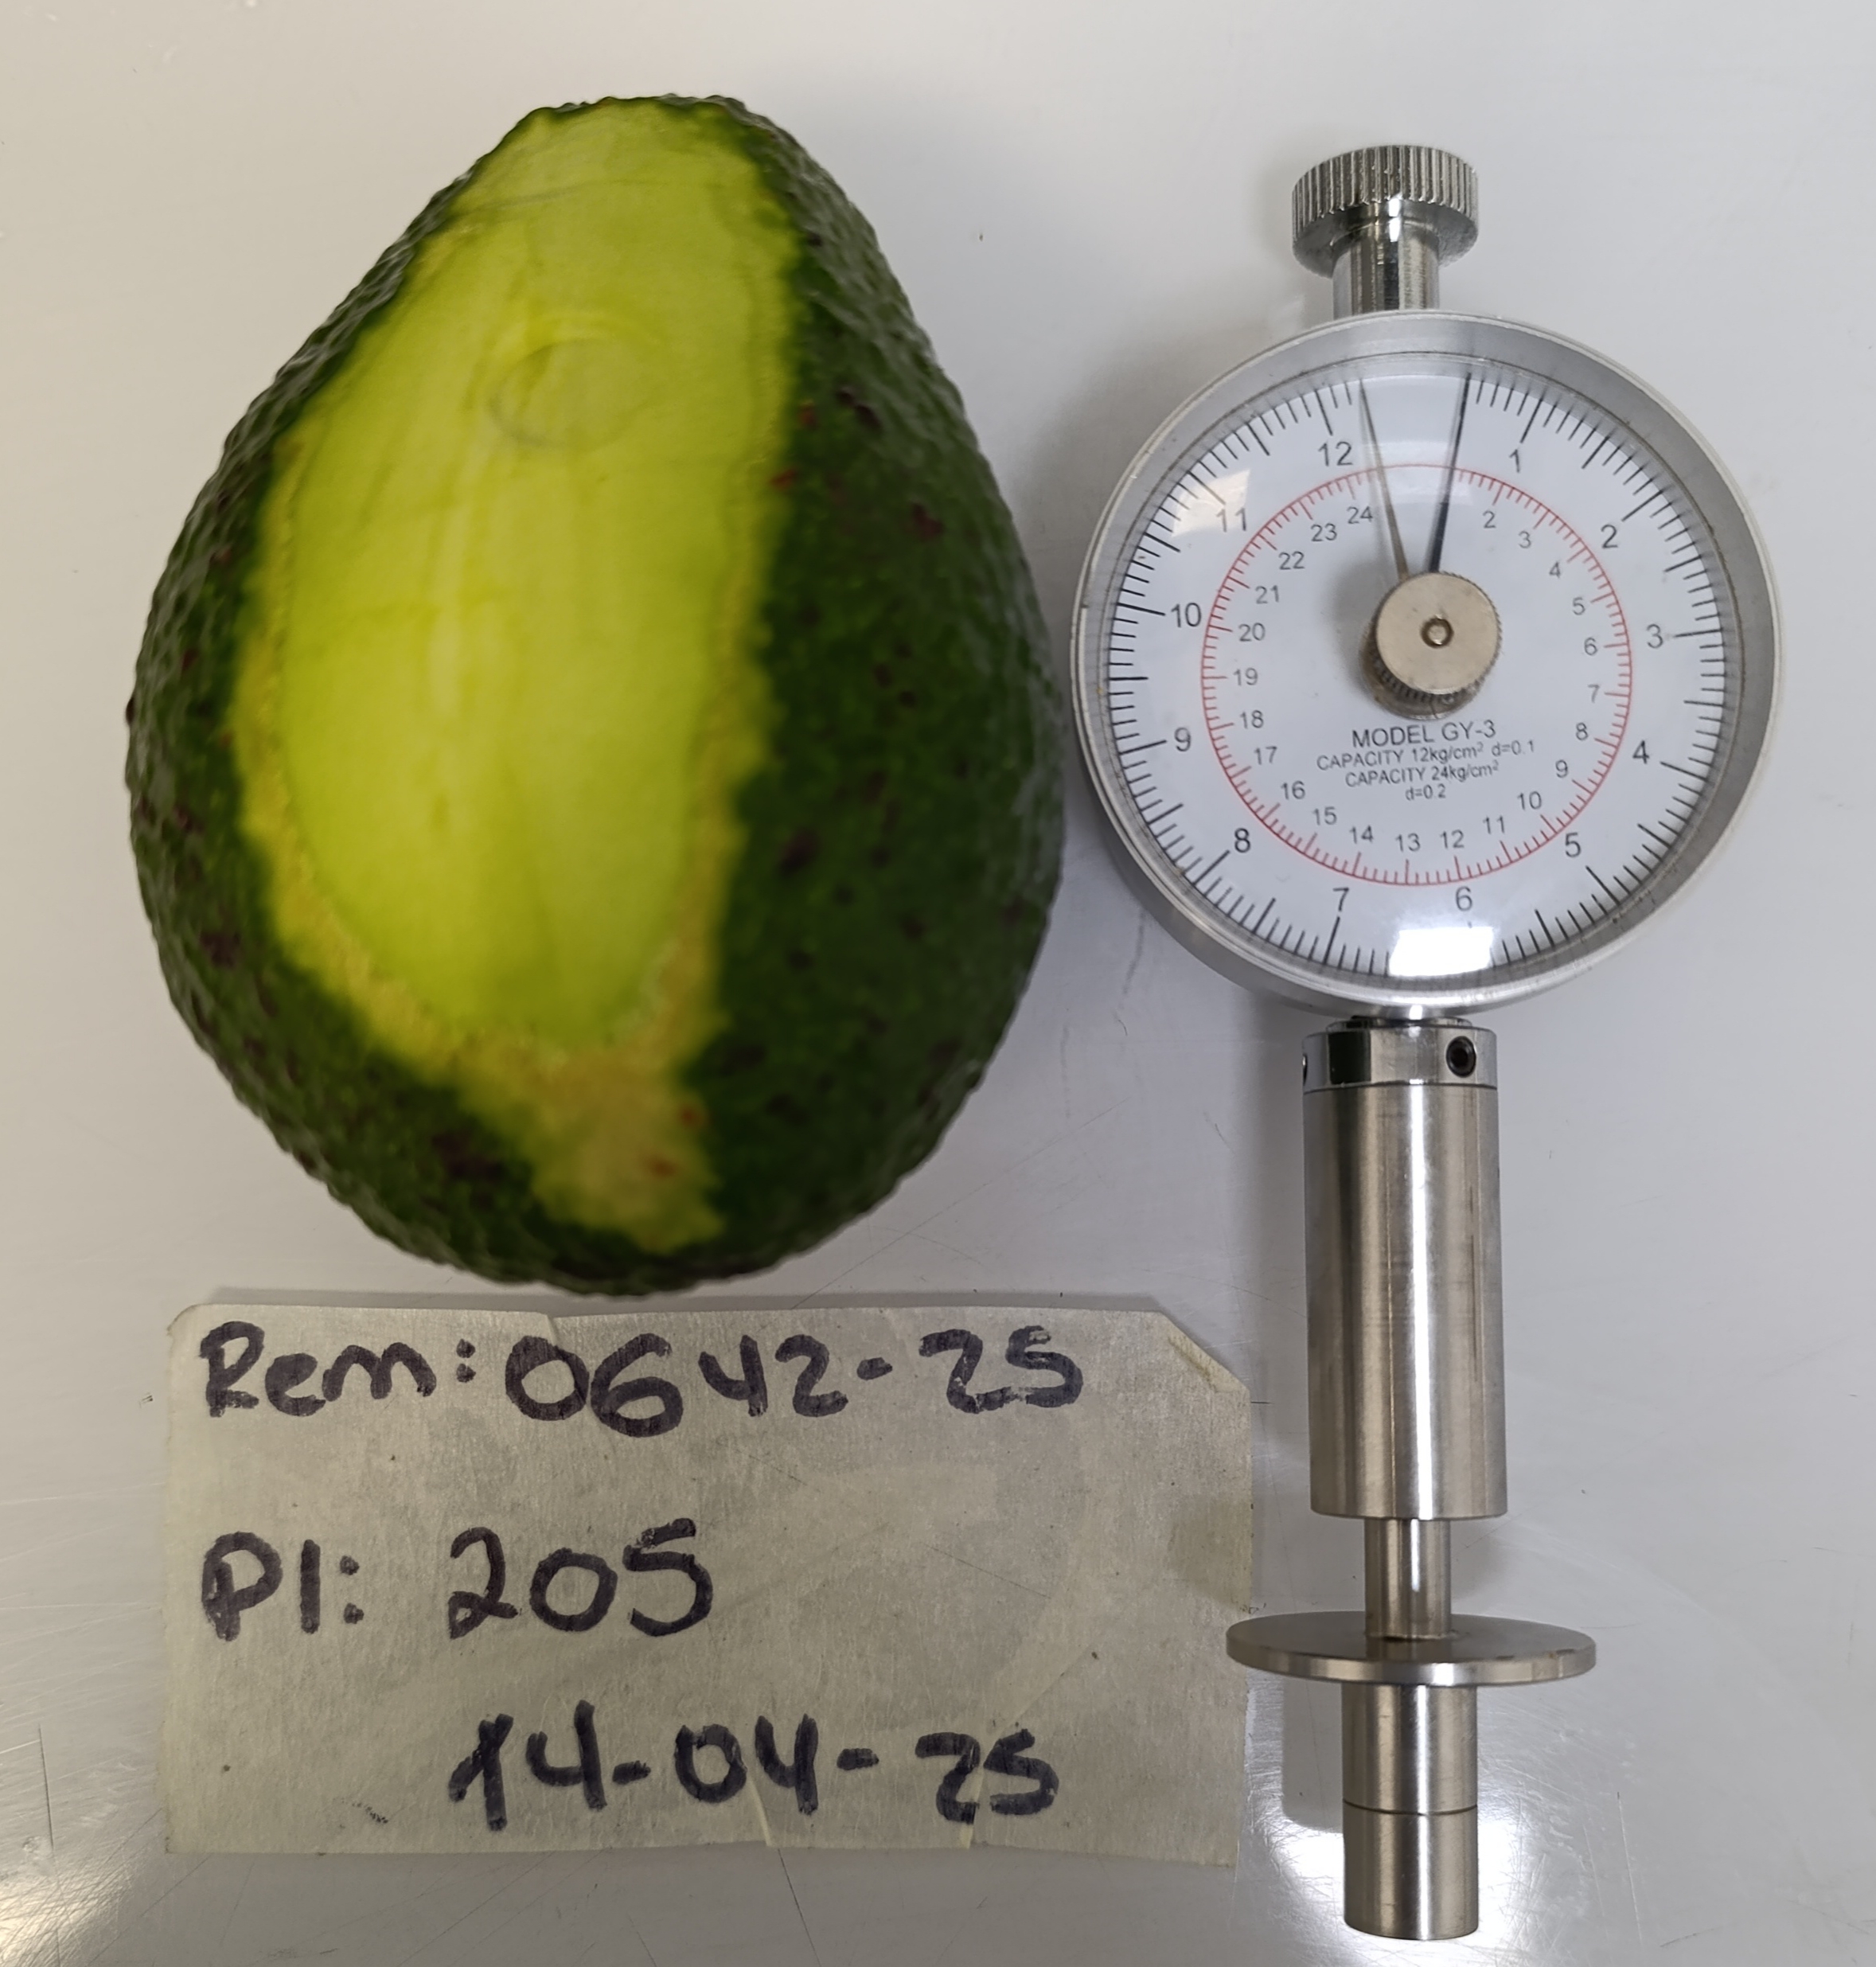 12
1
2
3
4
5
6
7
8
9
10
11
24
2
3
4
5
6
7
8
9
10
11
12
13
14
15
16
17
18
19
20
21
22
23
MODEL GY-3
CAPACITY 12kg/cm² d=0.1
CAPACITY 24kg/cm²
d=0.2
Rem: 0642-25
Pl: 205
14-04-25